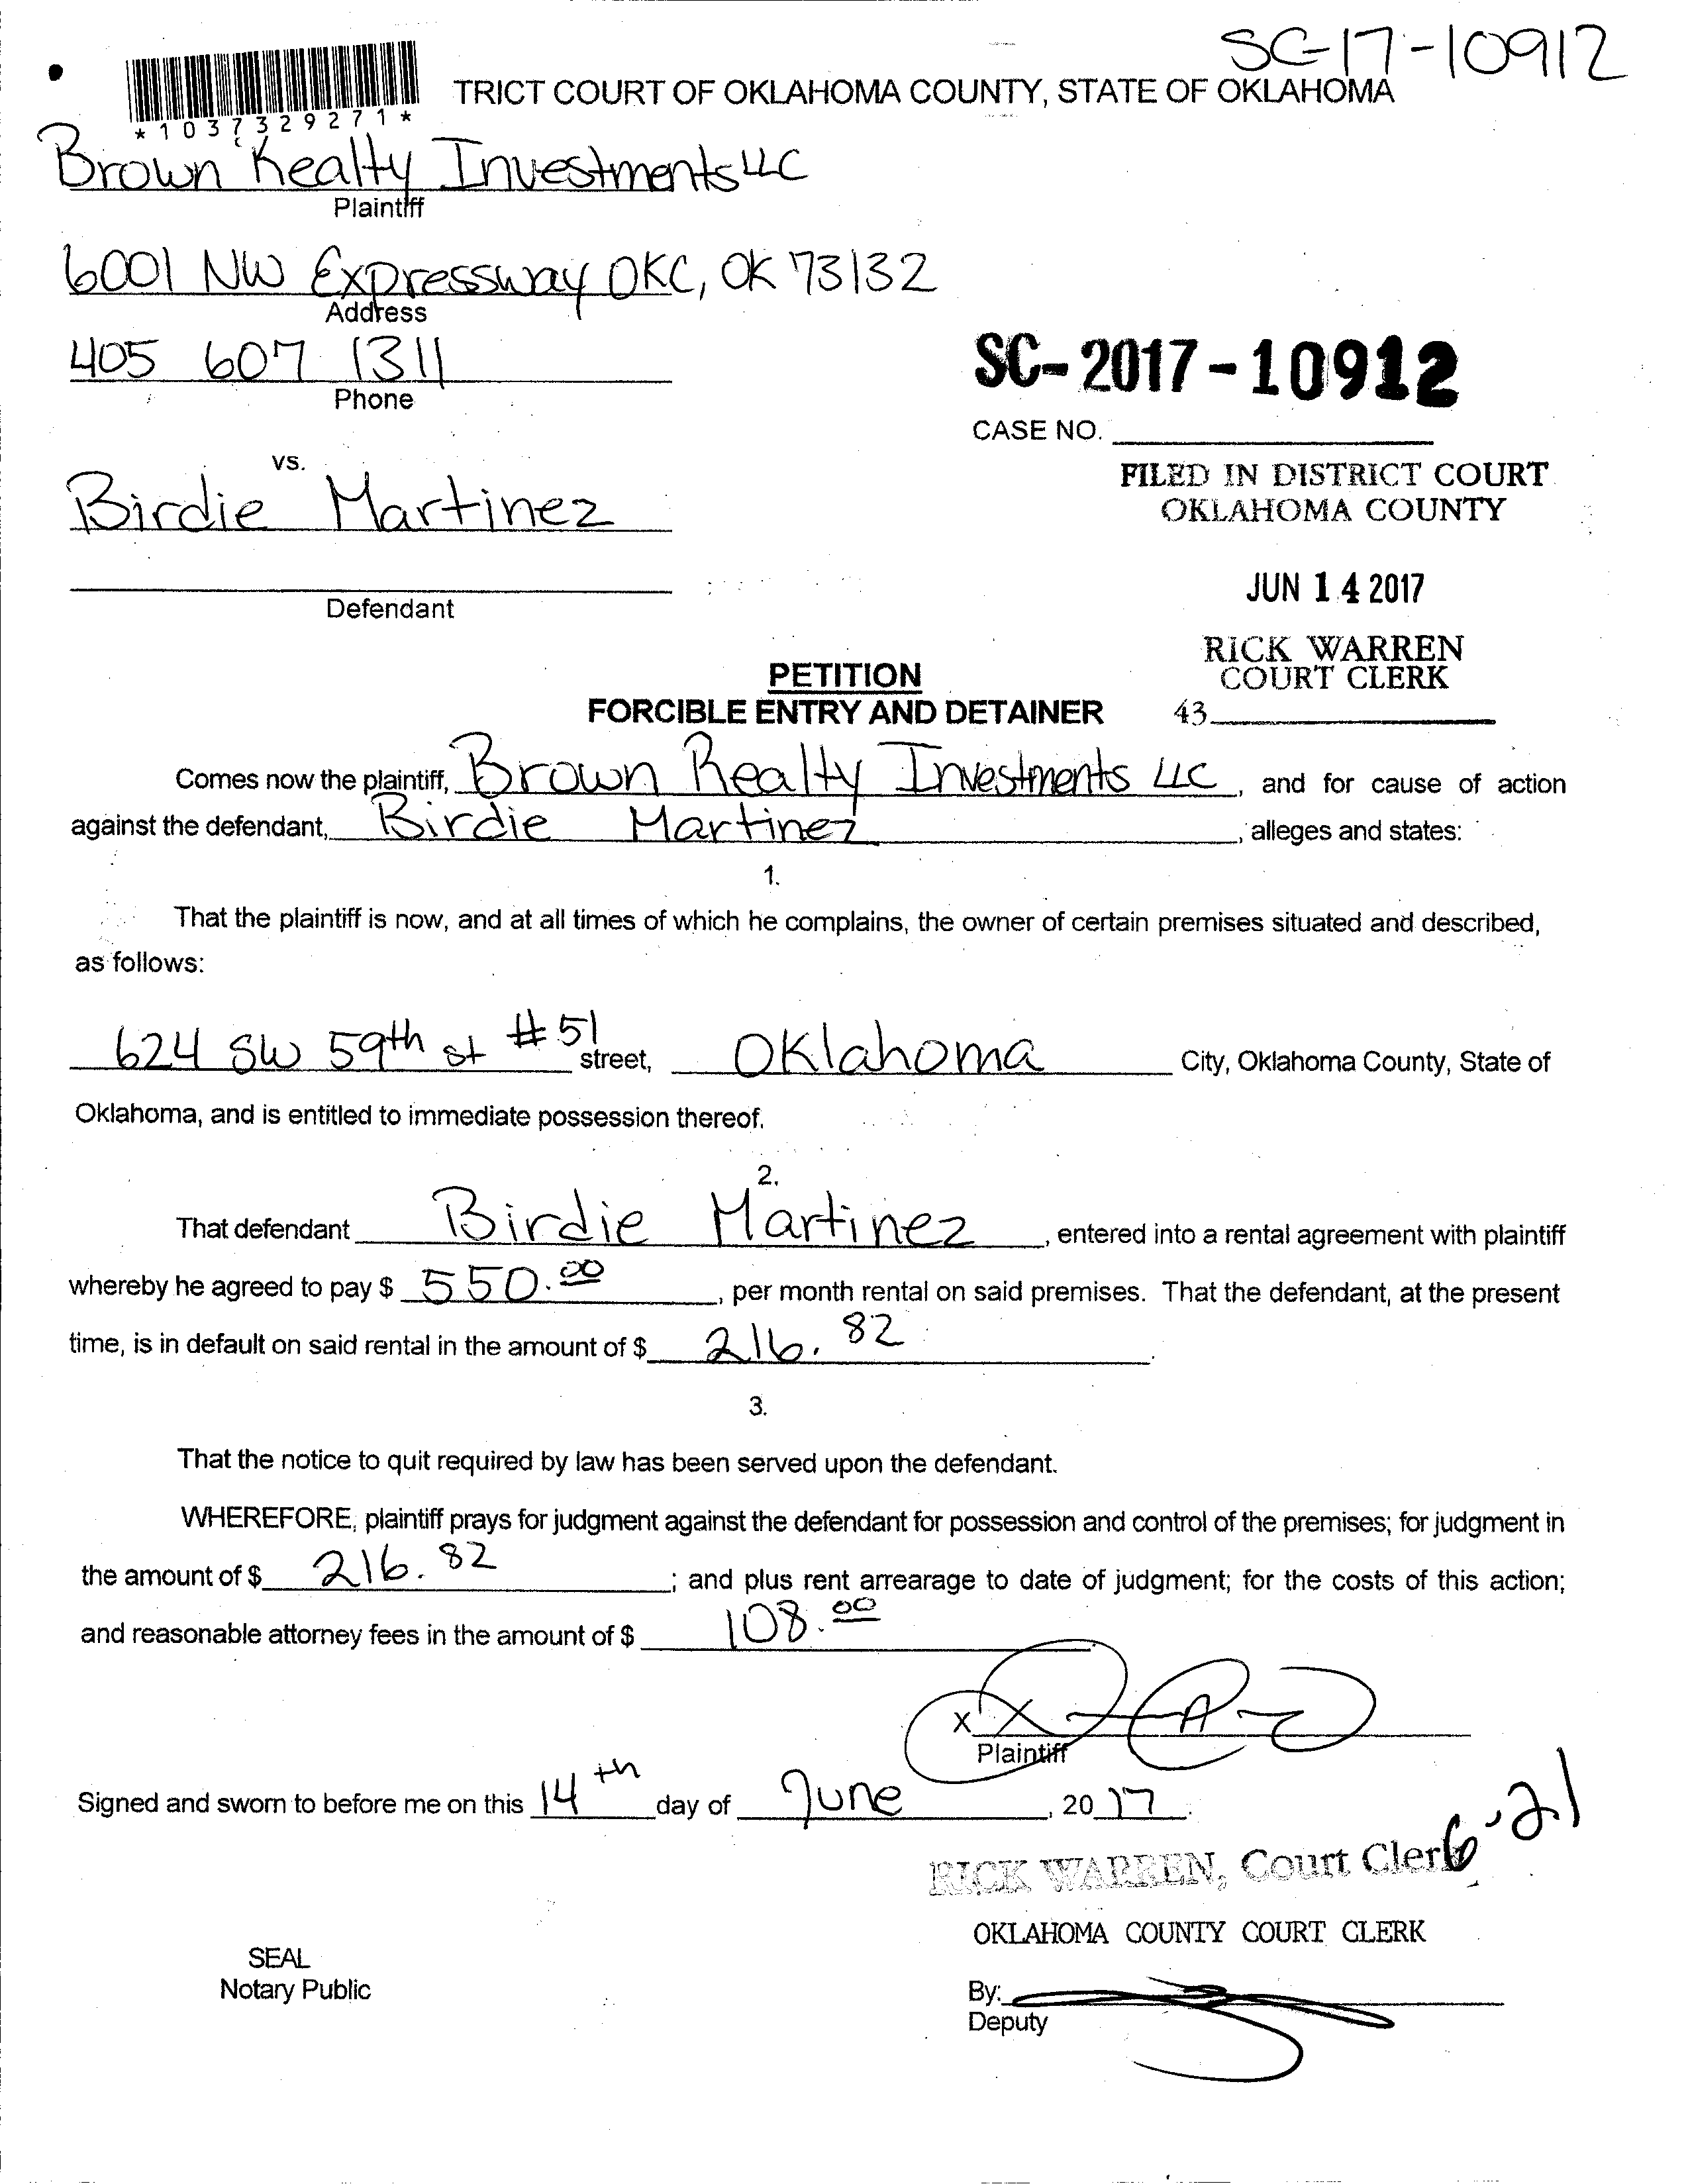 SC-17-10912
TRICT COURT OF OKLAHOMA COUNTY, STATE OF OKLAHOMA
*1037329271*
Brown Realty Investments LLC
Plaintiff
6001 NW Expressway OKC, OK 73132
Address
405 607 1311
Phone
SC-2017-10912
CASE NO.
vs.
FILED IN DISTRICT COURT
OKLAHOMA COUNTY
Birdie Martinez
JUN 14 2017
Defendant
RICK WARREN
COURT CLERK
43
PETITION
FORCIBLE ENTRY AND DETAINER
Comes now the plaintiff, Brown Realty Investments LLC, and for cause of action
against the defendant, Birdie Martinez, alleges and states:
1.
That the plaintiff is now, and at all times of which he complains, the owner of certain premises situated and described,
as follows:
624 SW 59th st #51 street, Oklahoma City, Oklahoma County, State of
Oklahoma, and is entitled to immediate possession thereof.
2.
That defendant Birdie Martinez, entered into a rental agreement with plaintiff
whereby he agreed to pay $ 550.00, per month rental on said premises. That the defendant, at the present
time, is in default on said rental in the amount of $ 216.82.
3.
That the notice to quit required by law has been served upon the defendant.
WHEREFORE, plaintiff prays for judgment against the defendant for possession and control of the premises; for judgment in
the amount of $ 216.82; and plus rent arrearage to date of judgment; for the costs of this action;
and reasonable attorney fees in the amount of $ 108.00
X X
Plaintiff
Signed and sworn to before me on this 14th day of June, 2017.
6-21
RICK WARREN, Court Clerk
OKLAHOMA COUNTY COURT CLERK
SEAL
Notary Public
By:
Deputy